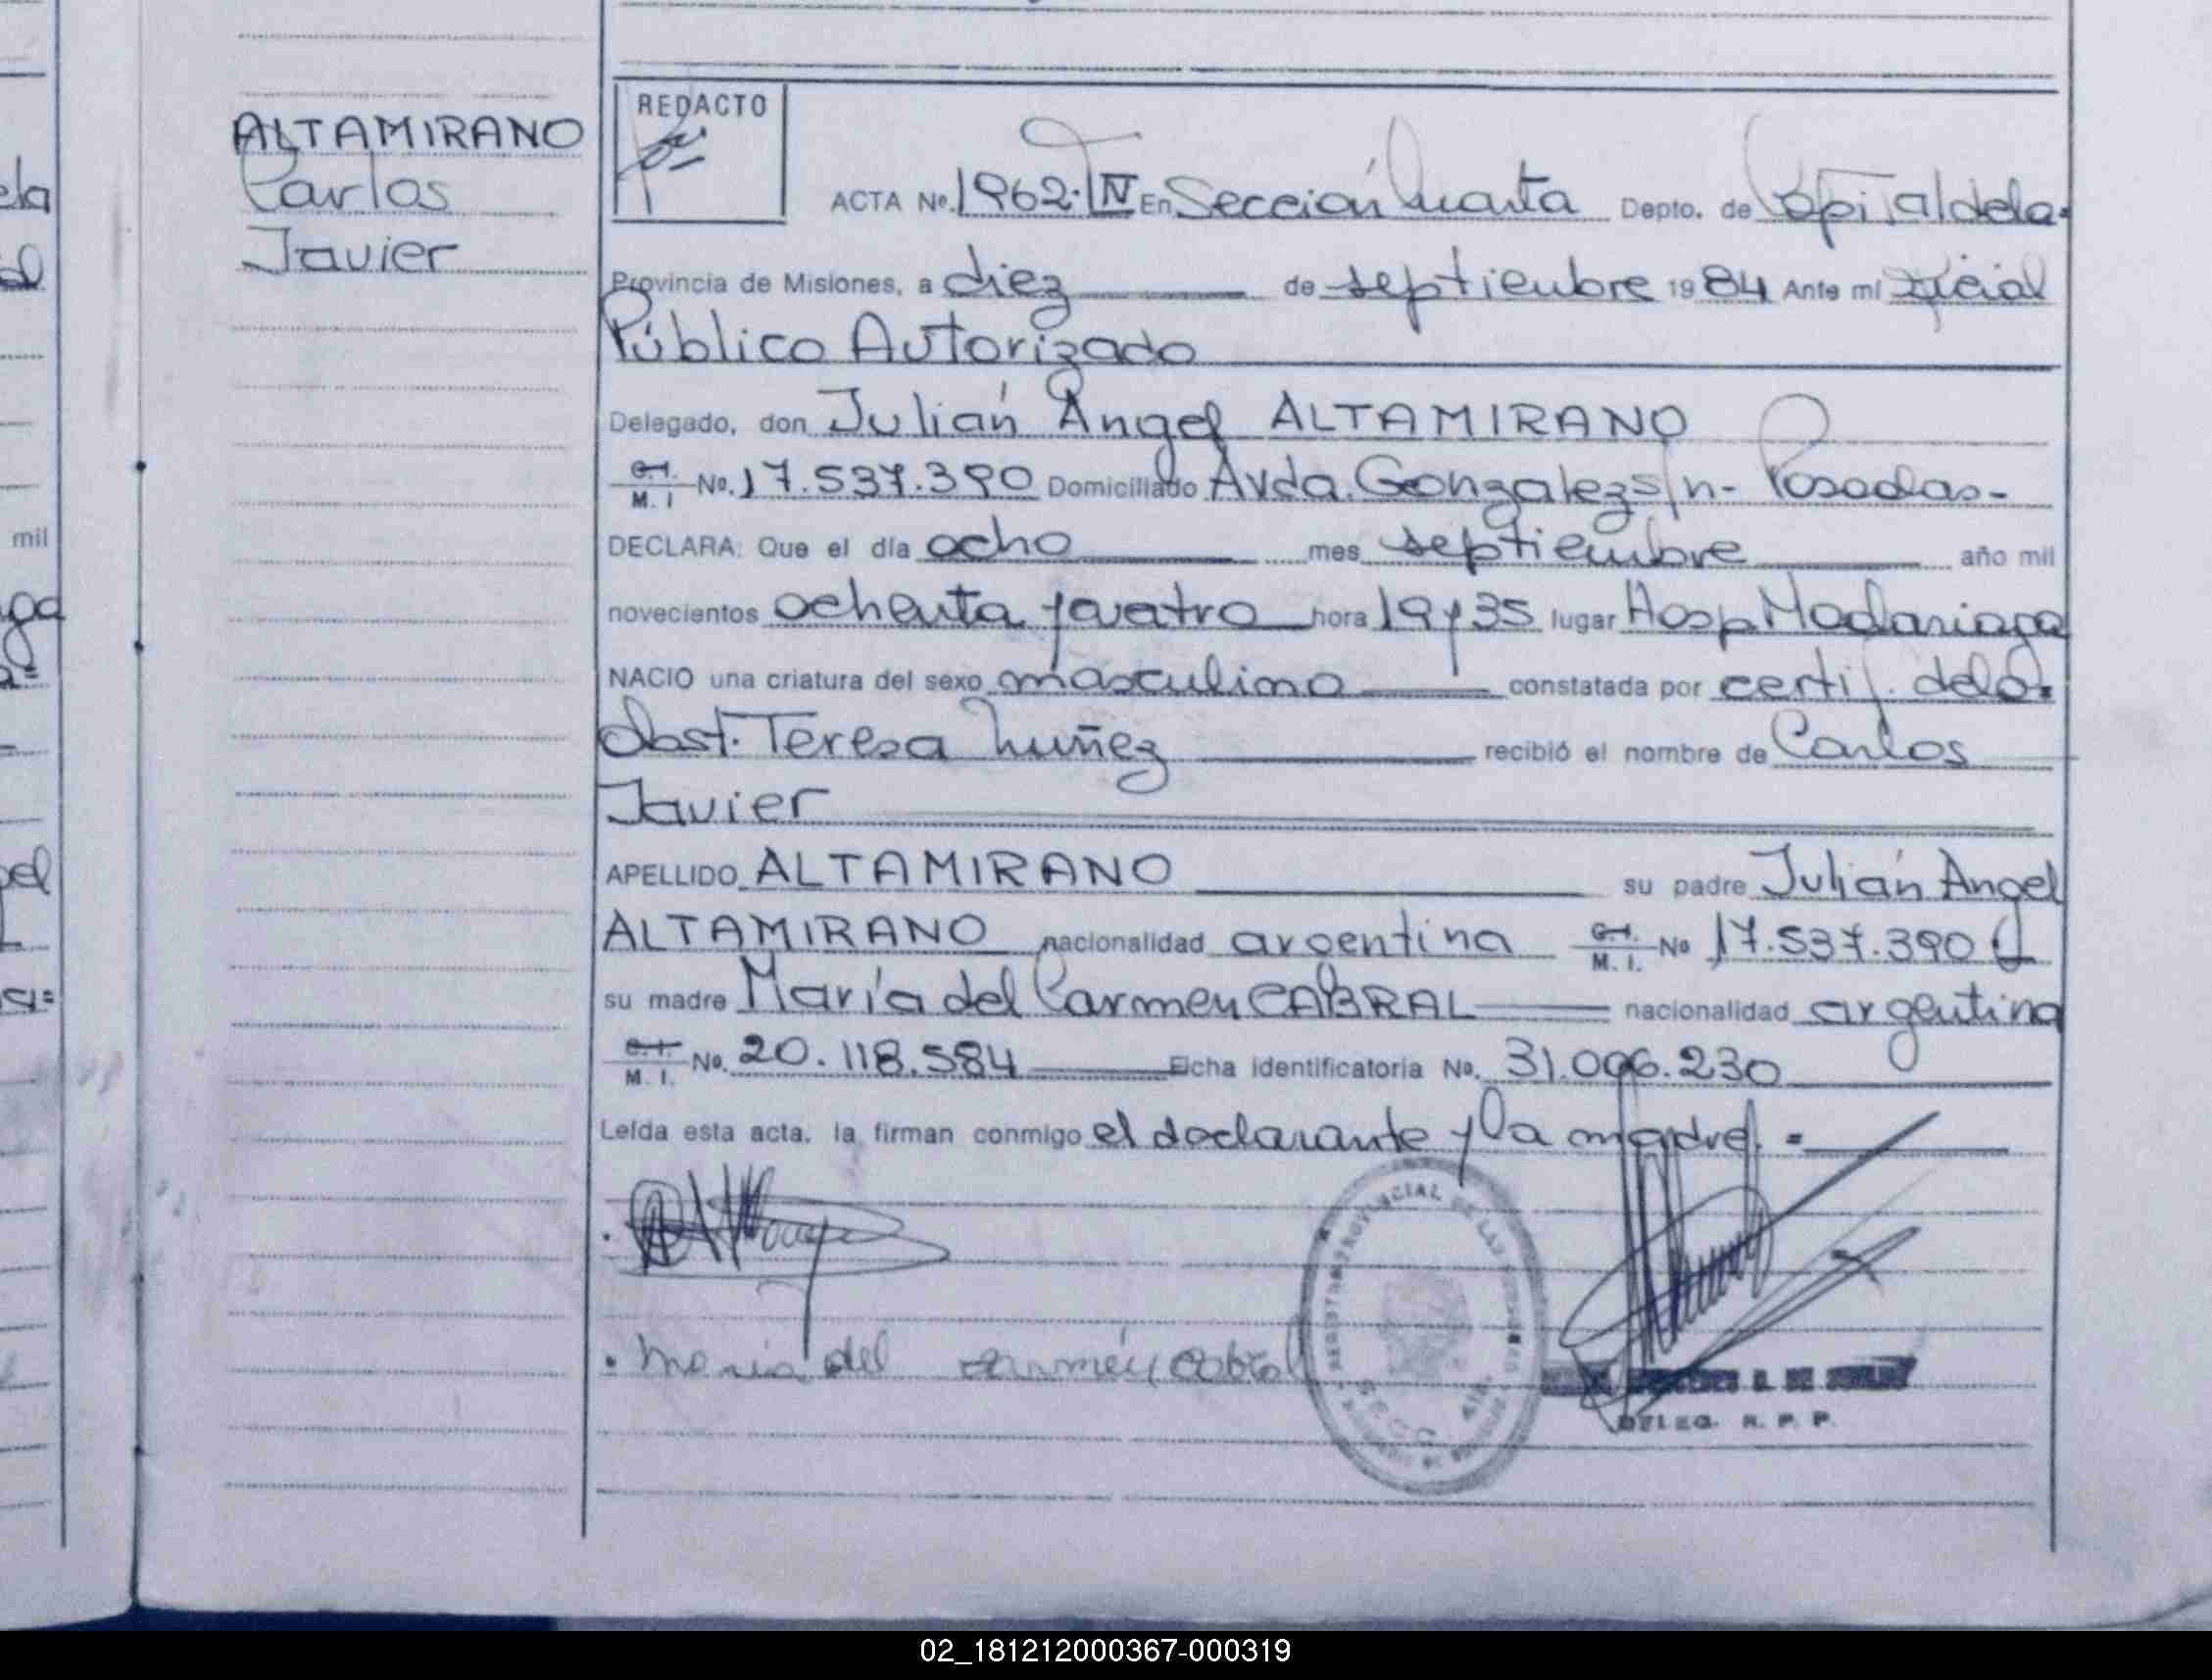 ALTAMIRANO
Carlos
Javier
REDACTO
ACTA Nº. 1962·IV En Sección Cuarta Depto. de Capital dela-
Provincia de Misiones, a diez de septiembre 1984 Ante mí Oficial
Público Autorizado
Delegado, don Julián Angel ALTAMIRANO
C.I. M. I Nº. 17.537.390 Domiciliado Avda. Gonzalez s/n- Posadas-
DECLARA: Que el día ocho mes septiembre año mil
novecientos ochenta y cuatro hora 19 y 35 lugar Hosp Madariaga
NACIO una criatura del sexo masculino constatada por certif. dela
Obst. Teresa Nuñez recibió el nombre de Carlos
Javier
APELLIDO ALTAMIRANO su padre Julián Angel
ALTAMIRANO nacionalidad argentina C.I. M. I. Nº 17.537.390
su madre María del Carmen CABRAL nacionalidad argentina
C.I. M. I. Nº. 20.118.584 Ficha identificatoria Nº. 31.096.230
Leída esta acta, la firman conmigo el declarante y la madre. =
Maria del carmén Cabral
PROVINCIAL DE LAS
SECC 4ta.
DELEG. R. P. P.
mil
02_181212000367-000319